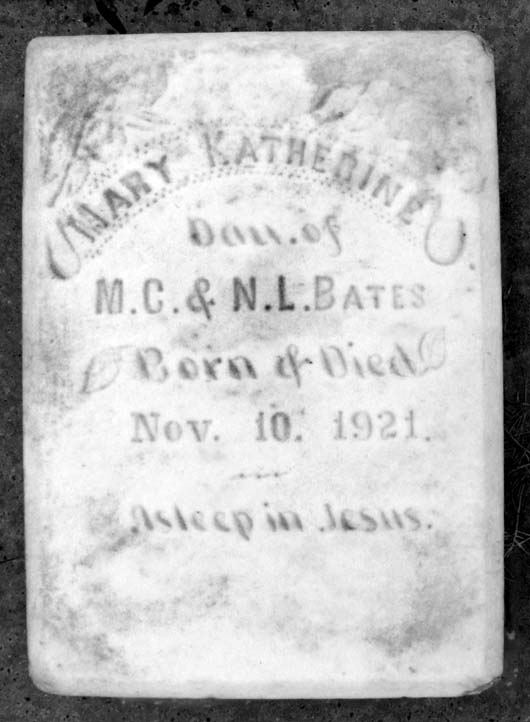 MARY KATHERINE
Dau. of
M.C. & N.L. BATES
Born & Died
Nov. 10. 1921.
Asleep in Jesus.